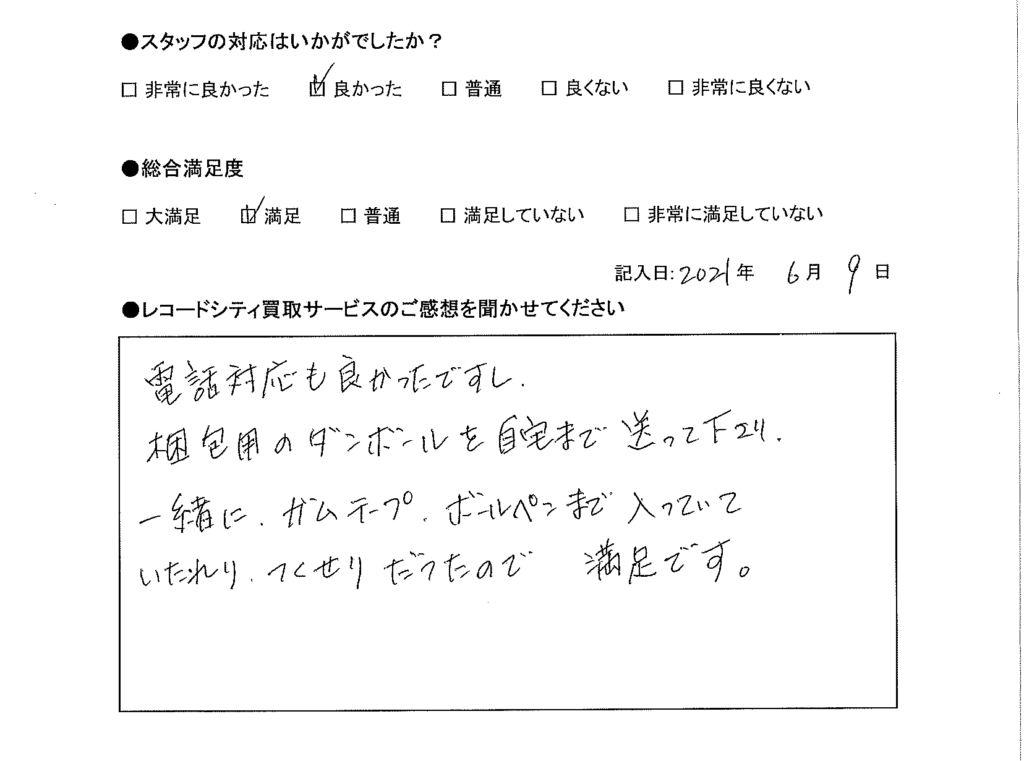 ●スタッフの対応はいかがでしたか？
□ 非常に良かった ☑ 良かった □ 普通 □ 良くない □ 非常に良くない
●総合満足度
□ 大満足 ☑ 満足 □ 普通 □ 満足していない □ 非常に満足していない
記入日:2021年 6月 9日
●レコードシティ買取サービスのご感想を聞かせてください
電話対応も良かったですし、
梱包用のダンボールを自宅まで送って下さり、
一緒に、ガムテープ、ボールペンまで入っていて
いたれり、つくせりだったので 満足です。